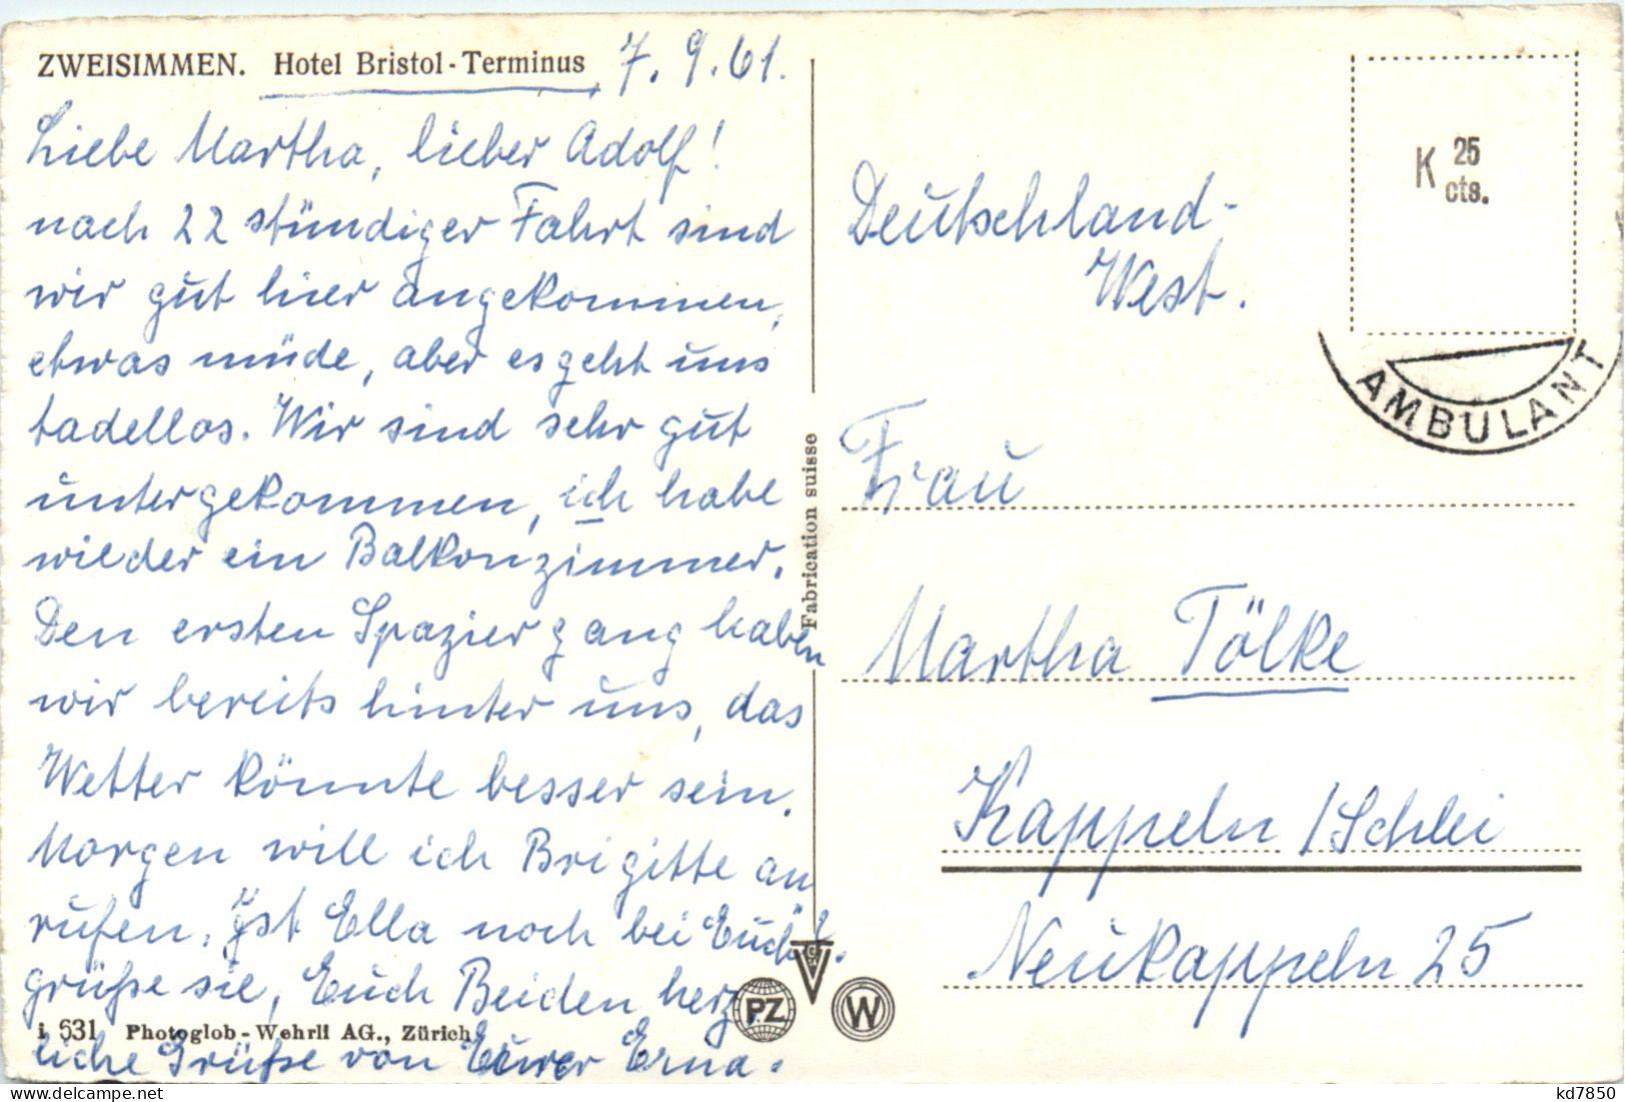 ZWEISIMMEN. Hotel Bristol-Terminus 7.9.61.
Liebe Martha, lieber Adolf!
nach 22 stündiger Fahrt sind
wir gut hier angekommen,
etwas müde, aber es geht uns
tadellos. Wir sind sehr gut
untergekommen, ich habe
wieder ein Balkonzimmer.
Den ersten Spaziergang haben
wir bereits hinter uns, das
Wetter könnte besser sein.
Morgen will ich Brigitte an
rufen. Ist Ella noch bei Euch?
grüße sie, Euch Beiden herz
liche Grüße von Eurer Erna.
i 531 Photoglob-Wehrli AG., Zürich
Fabrication suisse
PZ
V
W
K 25 cts.
AMBULANT
Deutschland-
West.
Frau
Martha Tölke
Kappeln /Schlei
Neukappeln 25
kd7850